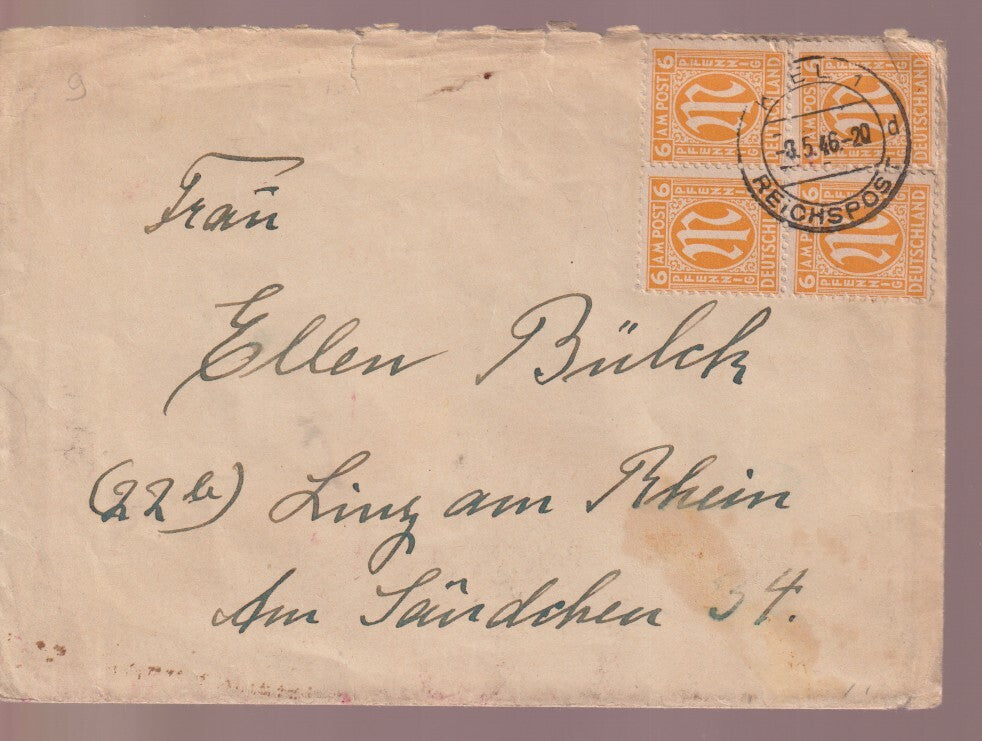 9
6 AM POST PFENNIG DEUTSCHLAND
6 AM POST PFENNIG DEUTSCHLAND
6 AM POST PFENNIG DEUTSCHLAND
6 AM POST PFENNIG DEUTSCHLAND
KIEL 1
-8.5.46.-20 d
REICHSPOST
Frau
Ellen Bülck
(22b) Linz am Rhein
Am Sändchen 34.